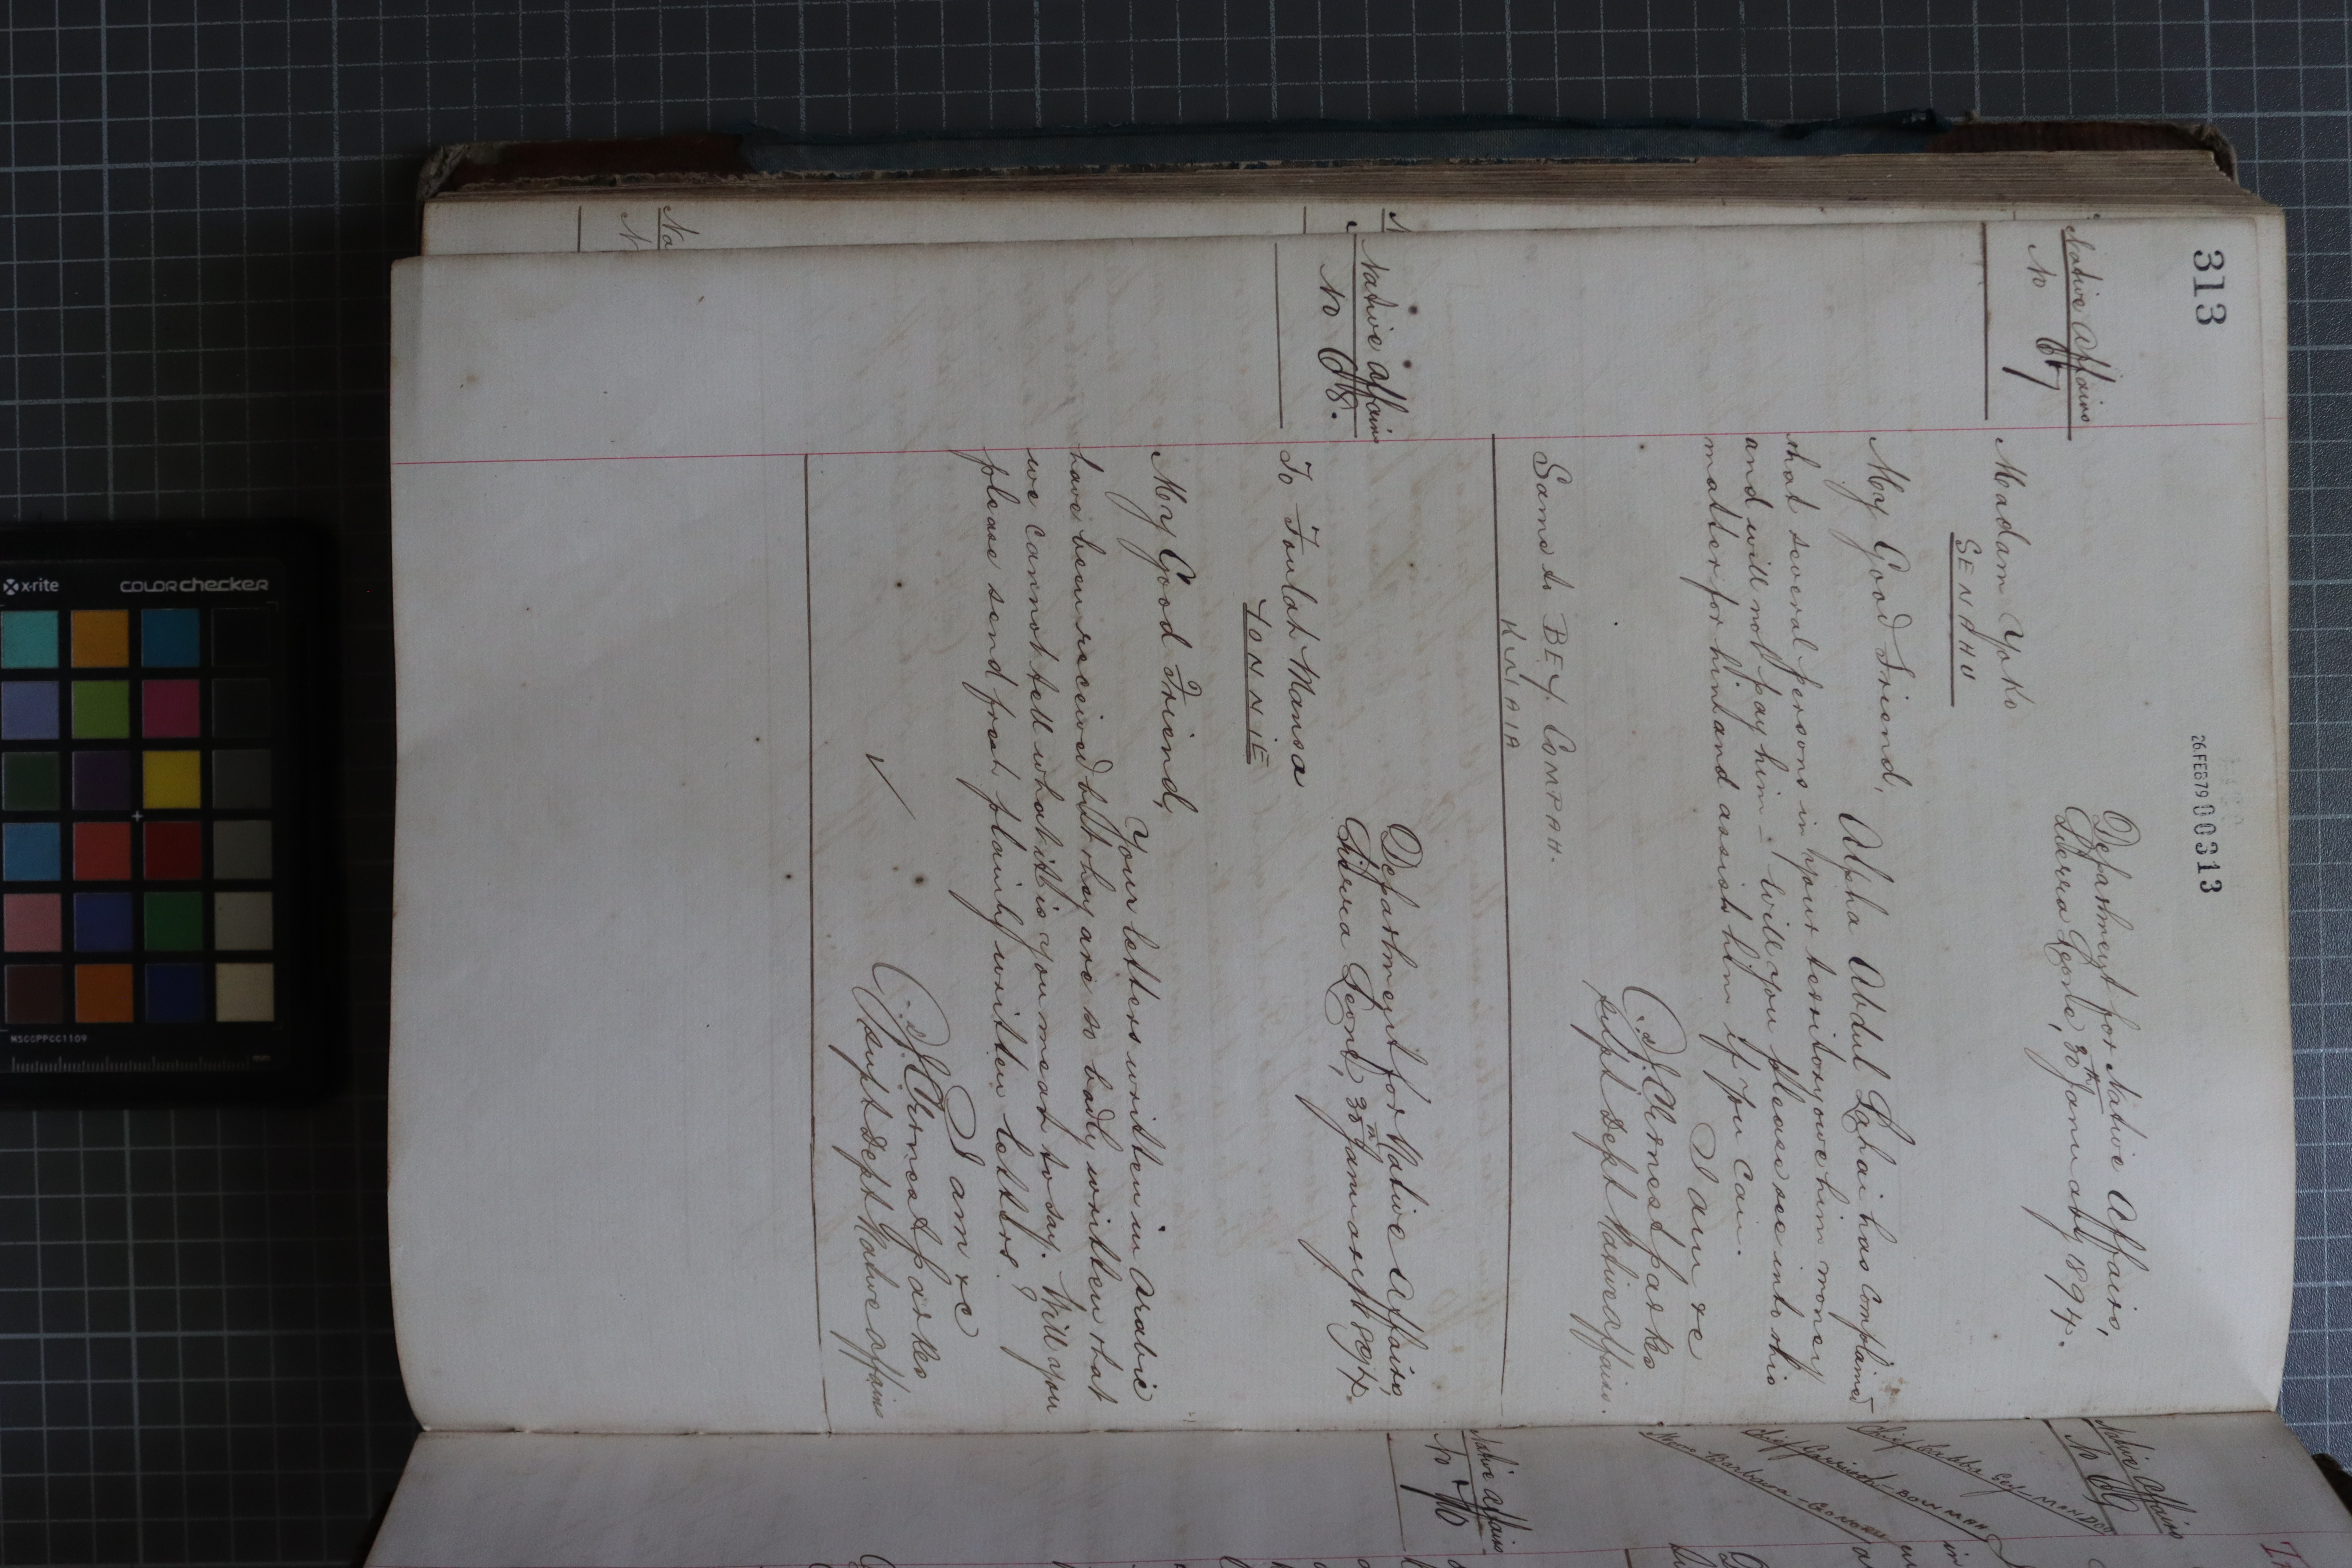 313
26 FEB 79 00313
Native Affairs
No 67
Department for Native Affairs,
Sierra Leone, 30th January 1894.
Madam Yoko
SENEHU
My Good Friend,
Alpha Abdul Lahai has complained
that several persons in your territory owe him money
and will not pay him – Will you please see into this
matter for him and assist him if you can.
I am &c
J. C. Ernest Parkes
Supt Dept Native Affairs.
Same to BEY COMPAH.
KRIAIA
Native Affairs
No 68.
Department for Native Affairs,
Sierra Leone, 30th January 1894.
To Foulah Mansa
YONNIE
My Good Friend,
Your letters written in Arabic
have been received but they are so badly written that
we cannot tell what it is you mean to say. Will you
please send fresh plainly written letters?
I am &c
J. C. Ernest Parkes
Supt Dept Native Affairs
Native Affairs
No 69
Native Affairs
No 70
x-rite
COLORchecker
MSCCPPCC1109